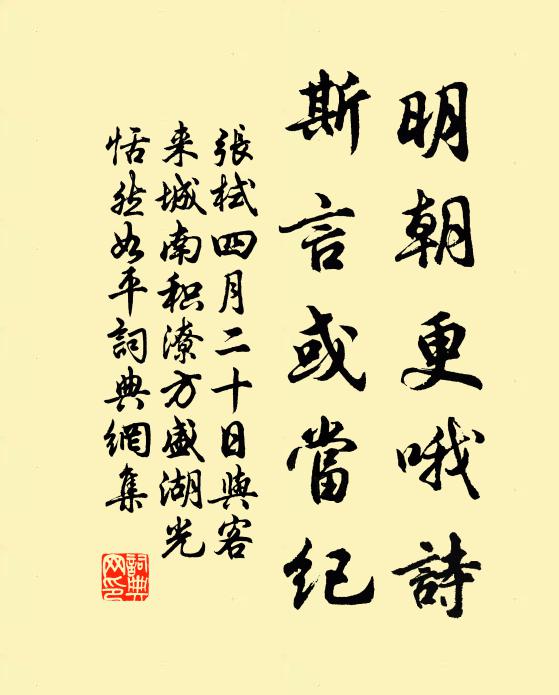 明朝更哦詩
斯言或當紀
張栻四月二十日與客
来城南积潦方盛湖光
恬然如平詞典網集
詞典網印